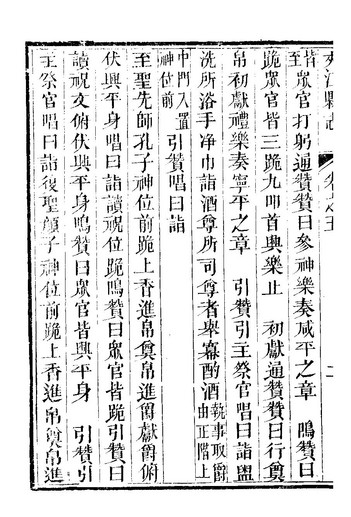 夾江縣志
卷之五
二
皆至眾官打躬通贊贊曰參神樂奏咸平之章　鳴贊曰
跪眾官皆三跪九叩首興樂止　初獻通贊贊曰行奠
帛初獻禮樂奏寧平之章　引贊引主祭官唱曰詣盥
洗所洛手淨巾詣酒尊所司尊者舉冪酌酒執事取爵由正階上
中門入置神位前　引贊唱曰詣
至聖先師孔子神位前跪上香進帛奠帛進爵獻爵俯
伏興平身唱曰詣讀祝位跪鳴贊曰眾官皆跪引贊曰
讀祝文俯伏興平身鳴贊曰眾官皆興平身　引贊引
主祭官唱曰詣復聖顏子神位前跪上香進帛奠帛進